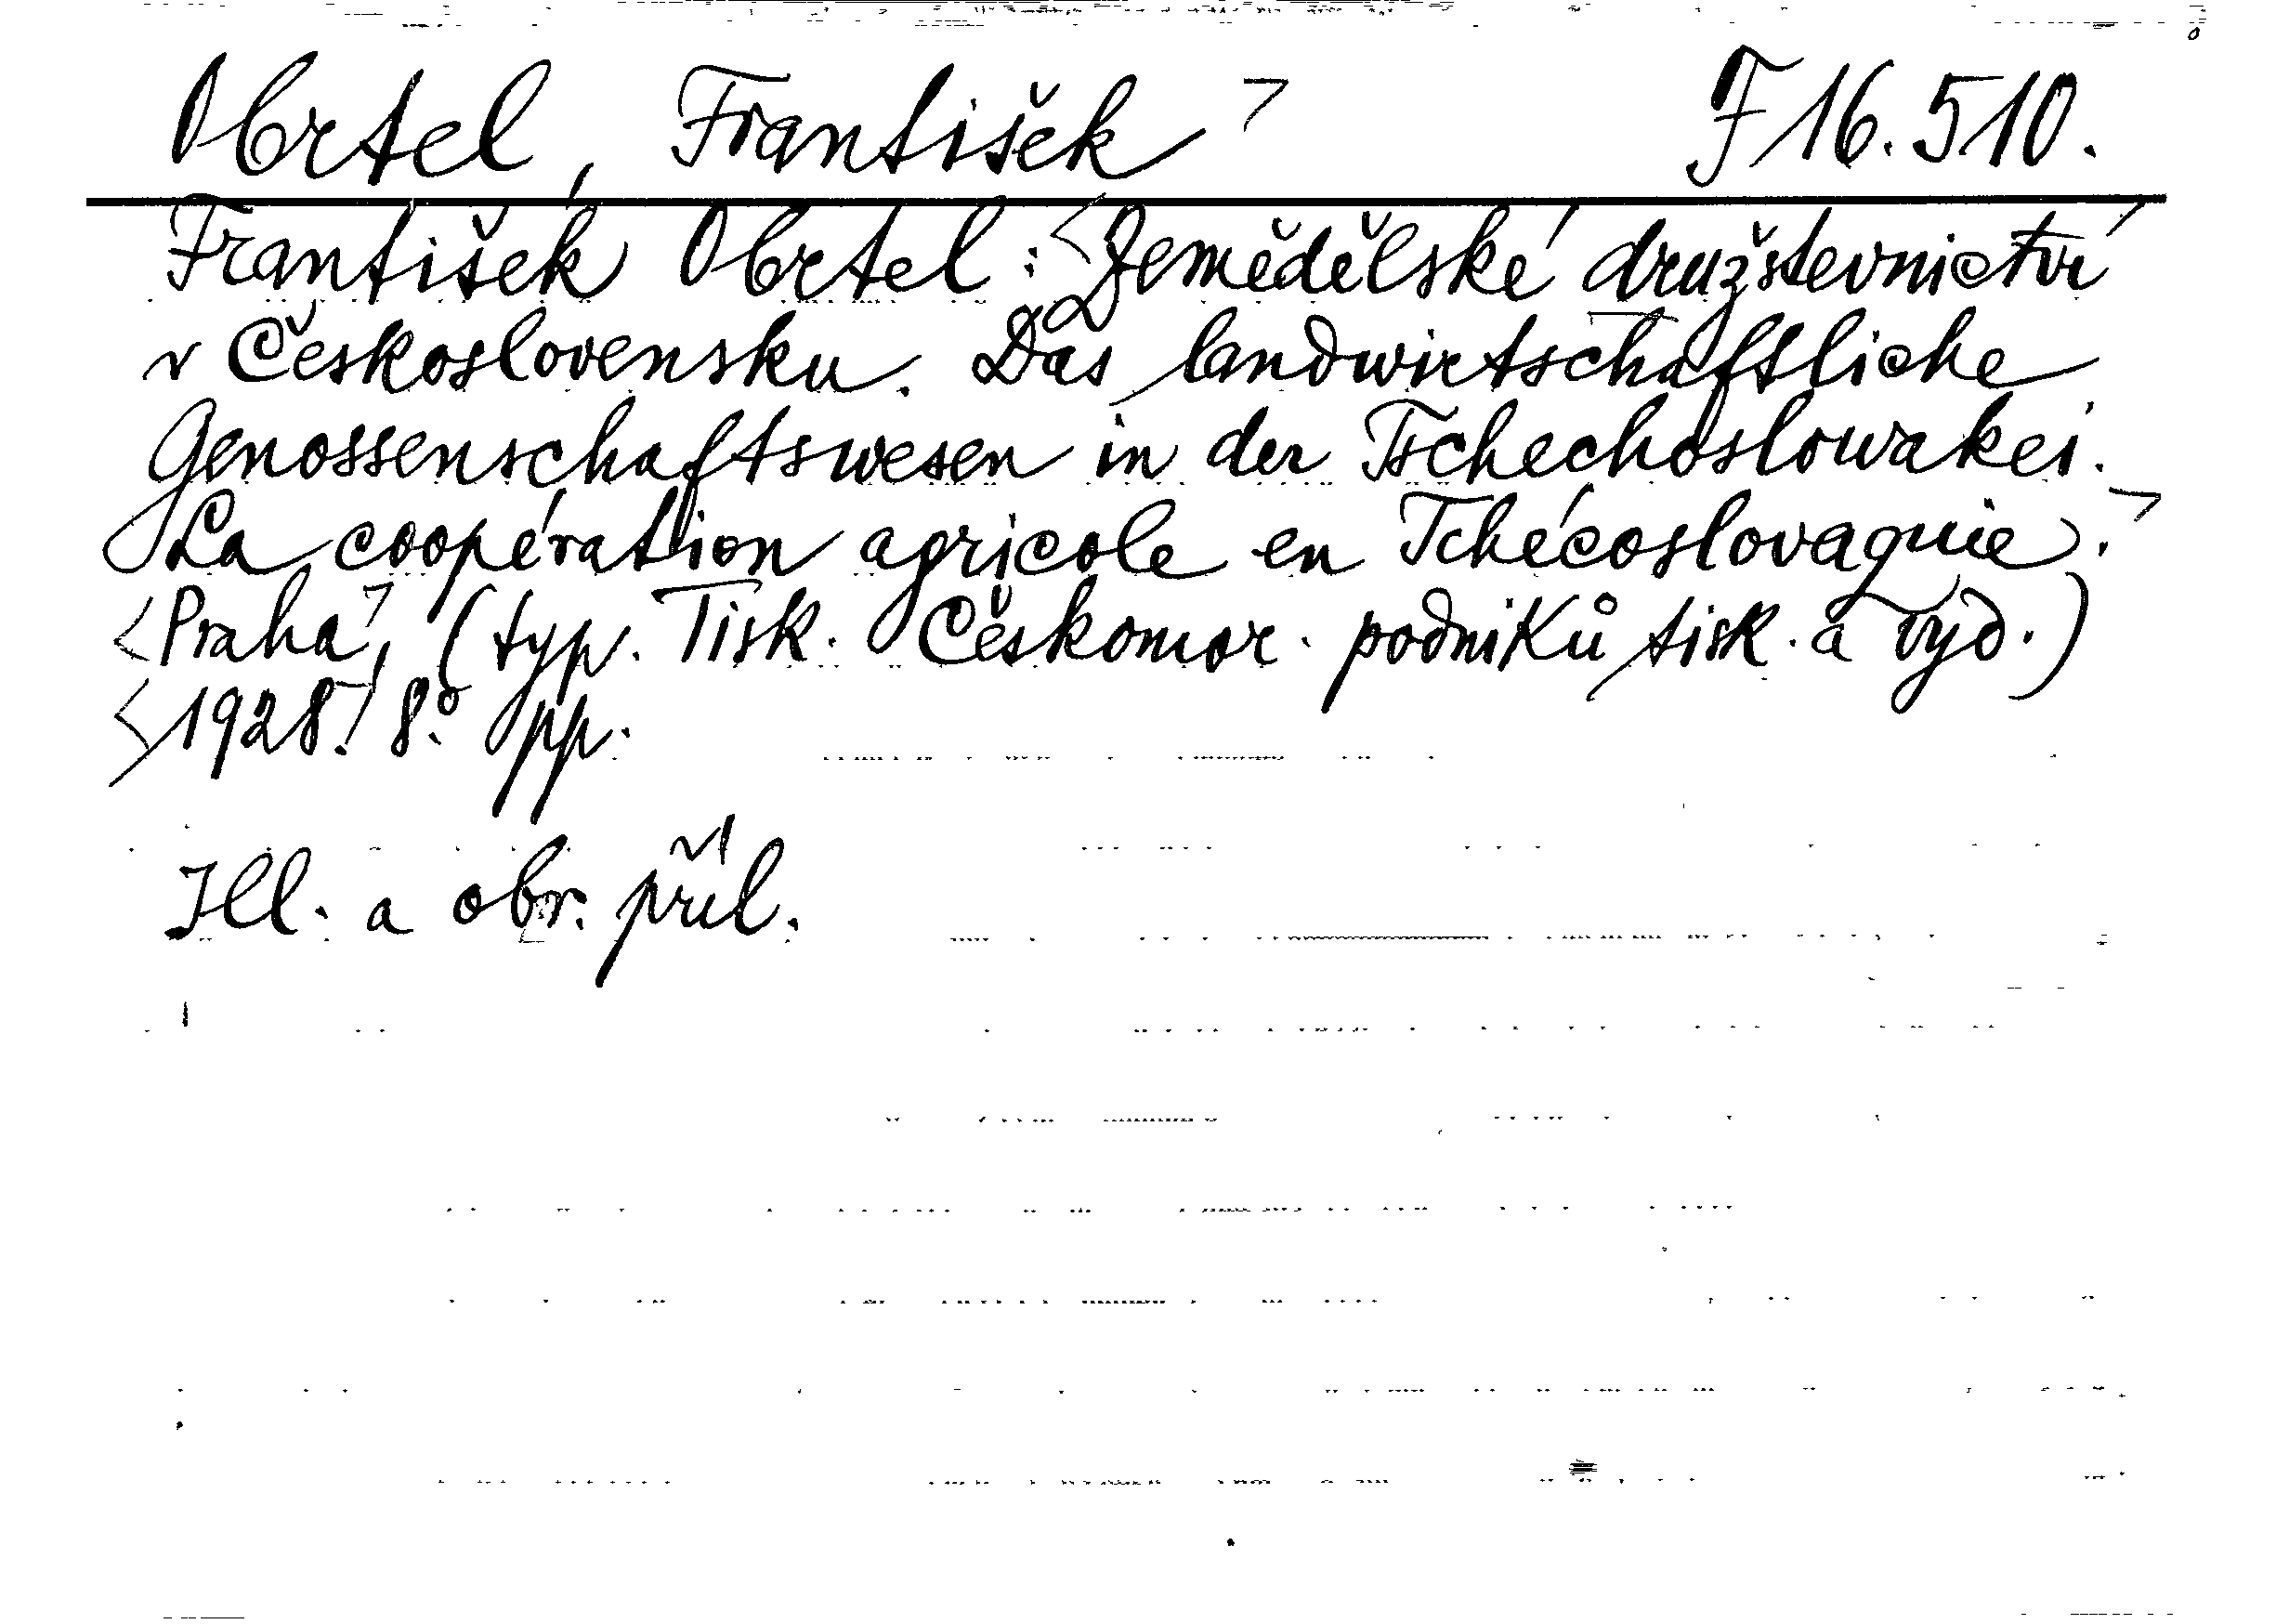 Obrtel, František F 16.510.
František Obrtel: Zemědělské družstevnictví
v Československu. Das landwirtschaftliche
Genossenschaftswesen in der Tschechoslowakei.
La coopération agricole en Tchécoslovaquie.
Praha, (typ. Tisk. Českomor. podniků tisk. a vyd.)
1928. 8.° pp.
Ill. a obr. příl.